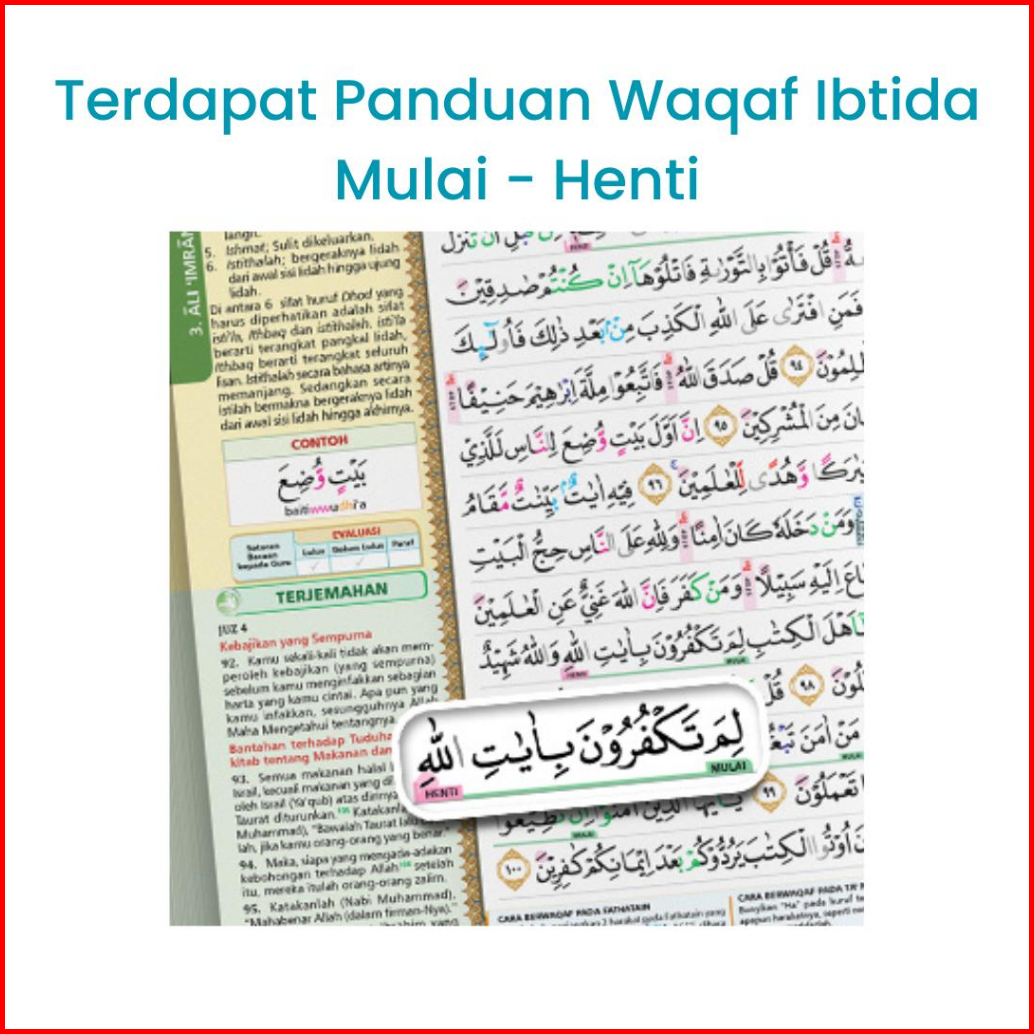 Terdapat Panduan Waqaf Ibtida
Mulai - Henti
3. ĀLI 'IMRĀN
5. Ishmat; Sulit dikeluarkan.
6. Istithalah; bergeraknya lidah
dari awal sisi lidah hingga ujung
lidah.
Di antara 6 sifat huruf Dhod yang
harus diperhatikan adalah sifat
isti'la, ithbaq dan istithalah. isti'la
berarti terangkat pangkal lidah,
ithbaq berarti terangkat seluruh
lisan. Istithalah secara bahasa artinya
memanjang. Sedangkan secara
istilah bermakna bergeraknya lidah
dari awal sisi lidah hingga akhirnya.
CONTOH
بَيْتٍ وُّضِعَ
baitiwwudhi'a
EVALUASI
Setoran
Bacaan
kepada Guru
Lulus Belum Lulus Paraf
TERJEMAHAN
JUZ 4
Kebajikan yang Sempurna
92. Kamu sekali-kali tidak akan mem-
peroleh kebajikan (yang sempurna)
sebelum kamu menginfakkan sebagian
harta yang kamu cintai. Apa pun yang
kamu infakkan, sesungguhnya Allah
Maha Mengetahui tentangnya.
Bantahan terhadap
kitab tentang Makanan dan
93. Semua makanan halal
Israil, kecuali makanan yang
oleh Israil (Ya'qub) atas dirinya
Taurat diturunkan. Katakanlah
Muhammad), "Bawalah Taurat lalu
lah, jika kamu orang-orang yang benar."
94. Maka, siapa yang mengada-adakan
kebohongan terhadap Allah setelah
itu, mereka itulah orang-orang zalim.
95. Katakanlah (Nabi Muhammad),
"Mahabenar Allah (dalam firman-Nya)."
قُلْ فَأْتُوْا بِالتَّوْرٰىةِ فَاتْلُوْهَآ اِنْ كُنْتُمْ صٰدِقِيْنَ
فَمَنِ افْتَرٰى عَلَى اللّٰهِ الْكَذِبَ مِنْۢ بَعْدِ ذٰلِكَ فَاُولٰۤىِٕكَ
٩٤ قُلْ صَدَقَ اللّٰهُ فَاتَّبِعُوْا مِلَّةَ اِبْرٰهِيْمَ حَنِيْفًا
مِنَ الْمُشْرِكِيْنَ ٩٥ اِنَّ اَوَّلَ بَيْتٍ وُّضِعَ لِلنَّاسِ لَلَّذِيْ
وَّهُدًى لِّلْعٰلَمِيْنَ ٩٦ فِيْهِ اٰيٰتٌۢ بَيِّنٰتٌ مَّقَامُ
وَمَنْ دَخَلَهٗ كَانَ اٰمِنًا وَلِلّٰهِ عَلَى النَّاسِ حِجُّ الْبَيْتِ
اِلَيْهِ سَبِيْلًا وَمَنْ كَفَرَ فَاِنَّ اللّٰهَ غَنِيٌّ عَنِ الْعٰلَمِيْنَ
الْكِتٰبِ لِمَ تَكْفُرُوْنَ بِاٰيٰتِ اللّٰهِ وَاللّٰهُ شَهِيْدٌ
MULAI HENTI
٩٨ قُلْ
لِمَ تَكْفُرُوْنَ بِاٰيٰتِ اللّٰهِ
HENTI MULAI
مَنْ اٰمَنَ
تَعْمَلُوْنَ ٩٩
الْكِتٰبَ يَرُدُّوْكُمْ بَعْدَ اِيْمَانِكُمْ كٰفِرِيْنَ ١٠٠
CARA BERWAQAF PADA FATHATAIN
CARA BERWAQAF PADA